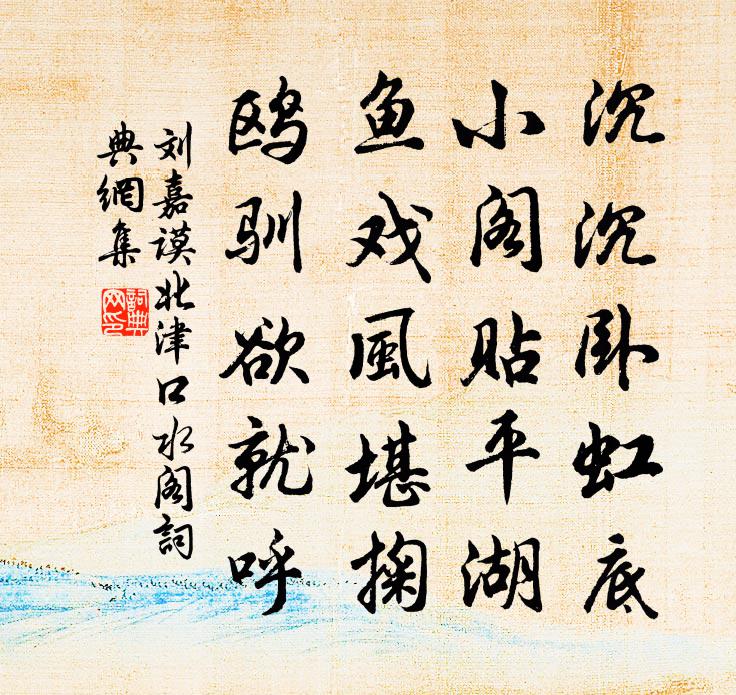 沉沉卧虹底
小阁贴平湖
鱼戏風堪掬
鸥驯欲就呼
刘嘉谟北津口水阁詞
典網集
詞典
网印